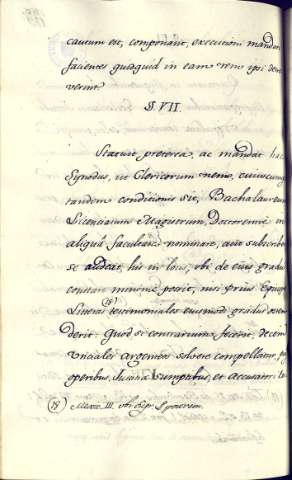 cautum est, componant, executioni mandari
facientes quidquid in eam rem ipsi decre
verint
§. VII.
Statuit preterea, ac mandat hæc
Synodus, ut Clericorum nemo, cuiuscumq
tandem conditionis sit, Bachalaureum
Licenciatum Magistrum, Doctoremve in
aliqua facultate nominare, aut subscribere
se audeat, his in locis, ubi de eius gradu
constare minime potest, nisi prius Episcopo
(18)
Litteras testimoniales eiusmodi gradus osten
derit. Quod si contrarium fecerit, decem
Vnciales argenteos solvere compellatur, piis
operibus, sumptibus, et Accusatori
(18) Mexic. III.